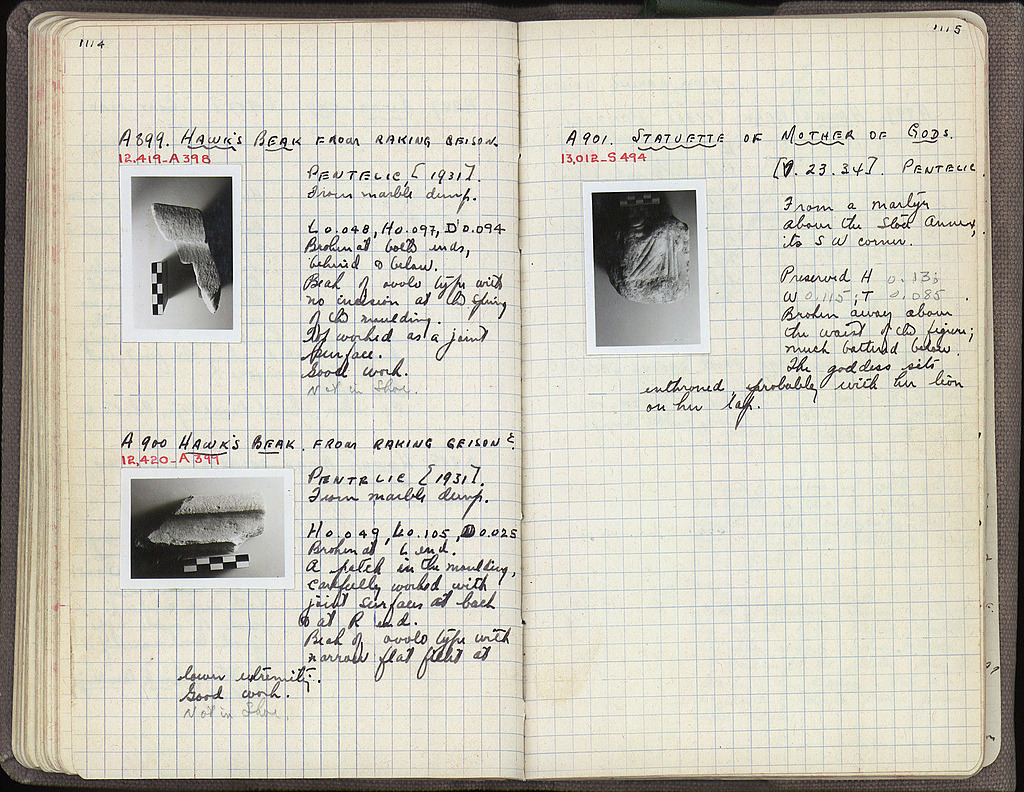 1114
A 899. HAWK'S BEAK FROM RAKING GEISON
12,419-A 398
PENTELIC [1931].
From marble dump.
L 0.048, H 0.097, D 0.094
Broken at both ends,
behind & below.
Beak of ovolo type with
no incision at the spring
of the moulding.
worked as a joint
surface.
Good work.
Not in Shoe.
A 900 HAWK'S BEAK FROM RAKING GEISON
12,420-A 399
PENTELIC [1931].
From marble dump.
H 0.049, L 0.105, D 0.025
Broken at L end.
A patch in the moulding,
carefully worked with
joint surfaces at back
& at R end.
Beak of ovolo type with
narrow flat fillet at
lower extremity.
Good work.
Not in Shoe.
1115
A 901. STATUETTE OF MOTHER OF GODS.
13,012-S 494
. 23.34]. PENTELIC.
From a martyr
above the Stoa Annex,
its SW corner.
Preserved H
W 0.115; T 0.085.
Broken away above
the waist of the figure;
much battered below.
The goddess sits
enthroned, probably with her lion
on her lap.